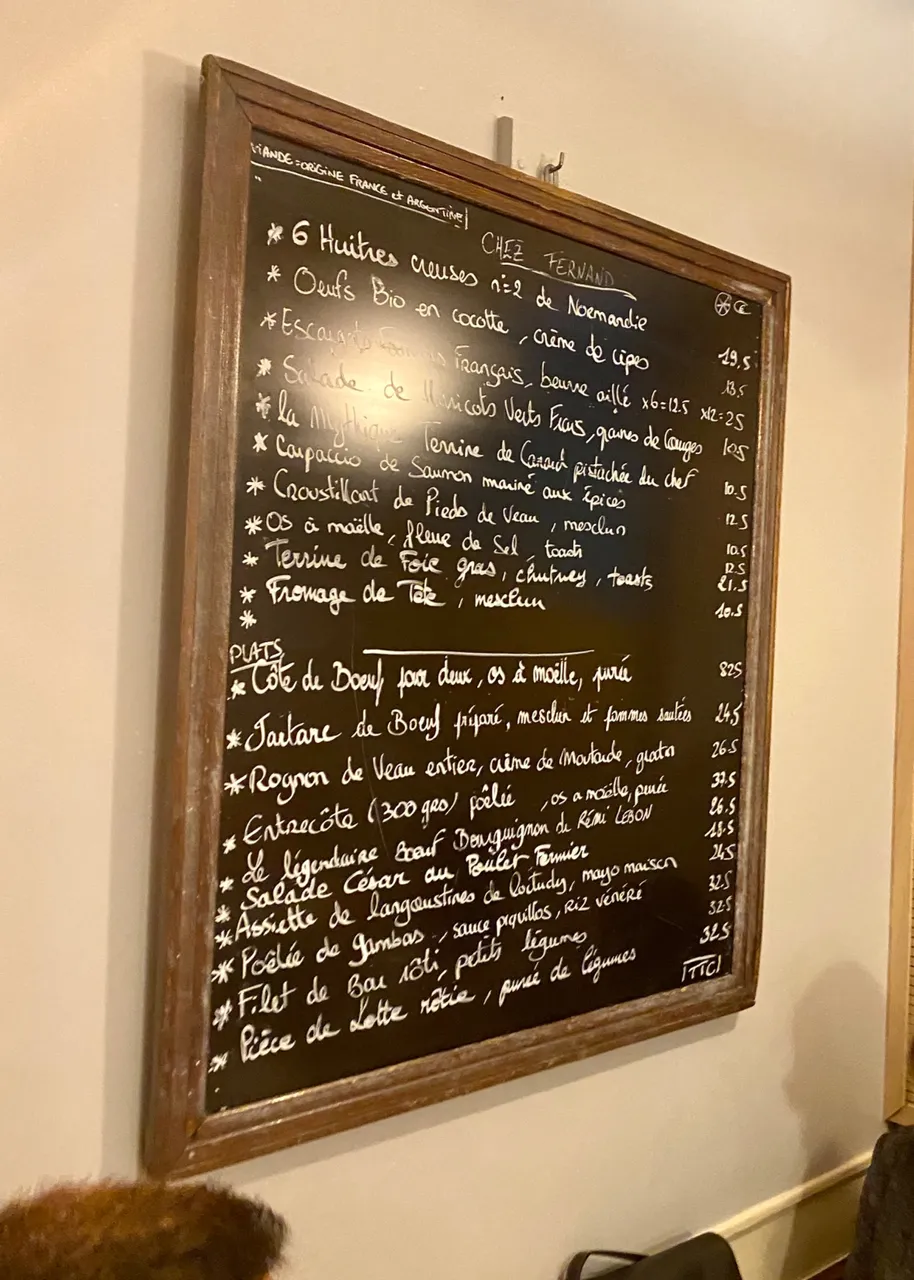 VIANDE = ORIGINE FRANCE et ARGENTINE
CHEZ FERNAND
* 6 Huitres creuses n=2 de Normandie 19.5
* Oeufs Bio en cocotte, crème de cèpes 13.5
* Escargots Français, beurre aillé x6=12.5 x12=25
* Salade de Haricots Verts Frais, graines de Courges 10.5
* La Mythique Terrine de Canard pistachée du chef 10.5
* Carpaccio de Saumon mariné aux épices 12.5
* Croustillant de Pieds de Veau, mesclun 10.5
* Os à maëlle, fleur de Sel, toasts 12.5
* Terrine de Foie gras, chutney, toasts 21.5
* Fromage de Tête, mesclun 10.5
*
PLATS
* Côte de Boeuf pour deux, os à moëlle, purée 82.5
* Tartare de Boeuf préparé, mesclun et pommes sautées 24.5
* Rognon de Veau entier, crème de Moutarde, gratin 26.5
* Entrecôte (300 grs) poêlée, os a moëlle, purée 37.5
* Le légendaire Boeuf Bourguignon de RÉMI LEBON 26.5
* Salade César au Poulet Fermier 19.5
* Assiette de langoustines de Loctudy, mayo maison 24.5
* Poêlée de gambas, sauce piquillos, Riz vénéré 32.5
* Filet de Bar rôti, petits légumes 32.5
* Pièce de Lotte rôtie, purée de légumes 32.5
TTC